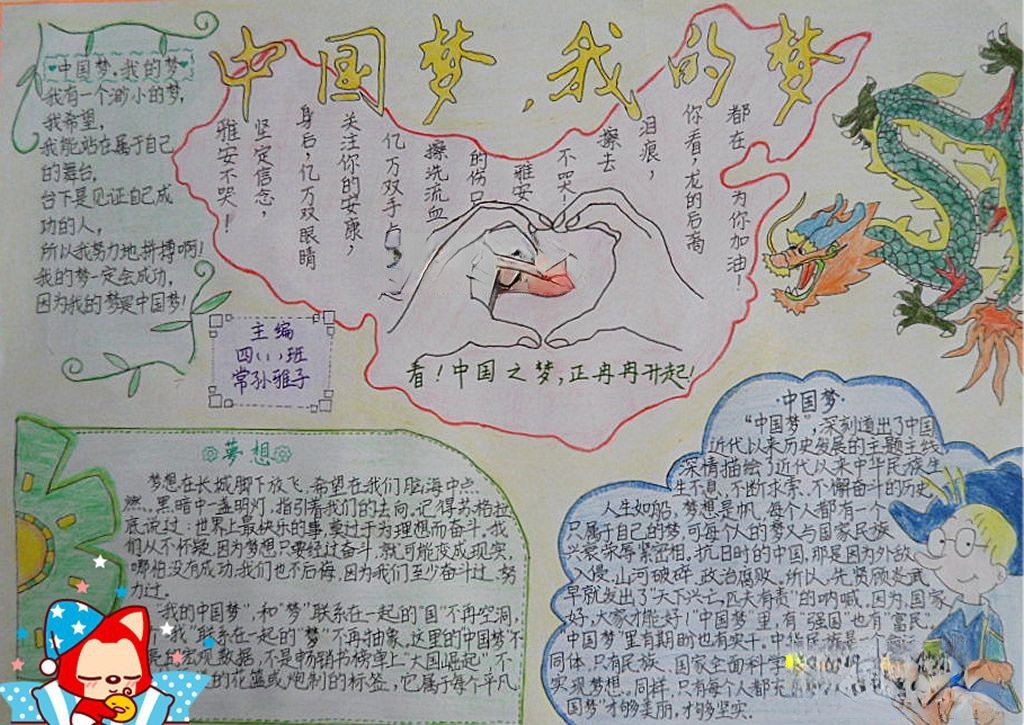 中国梦，我的梦
中国梫.我的梦
我有一个渺小的梦，
我希望，
我能站在属于自己
的舞台，
台下是见证自己成
功的人，
所以我努力地拼搏啊！
我的梦一定会成功，
因为我的梦是中国梦！
都在
为你加油！
你看，龙的后裔
泪痕，
擦去
不哭！
雅安
的伤口
擦洗流血
亿万双手
关注你的安康，
身后，亿万双眼睛
坚定信念，
雅安不哭！
看！中国之梦，正冉冉升起！
主编
四(1)班
常孙雅子
夢想
梦想在长城脚下放飞，希望在我们脑海中点
燃。黑暗中一盏明灯，指引着我们的去向。记得苏格拉
底说过：世界上最快乐的事，莫过于为理想而奋斗。我
们从不怀疑，因为梦想只要经过奋斗，就可能变成现实，
哪怕没有成功，我们也不后悔，因为我们至少奋斗过、努
力过。
"我的中国梦"，和"梦"联系在一起的"国"不再空洞，
我"联系在一起的"梦"不再抽象。这里的中国梦"不
宏观数据，不是畅销书榜单上"大国崛起"，不
的花篮或炮制的标签，它属于每个平凡
中国梦
"中国梦"，深刻道出了中国
近代以来历史发展的主题主线，
深情描绘了近代以来中华民族生
生不息、不断求索、不懈奋斗的历史。
人生如船，梦想是帆，每个人都有一个
只属于自己的梦，可每个人的梦又与国家民族
兴衰荣辱紧密相，抗日时的中国，那是因为外敌
入侵，山河破碎，政治腐败，所以，先贤顾炎武
早就发出了"天下兴亡，匹夫有责"的呐喊，因为，国家
好，大家才能好！"中国梦"里，有"强国"也有"富民"。
中国梦"里有期盼也有实干。中华民族是一个命运
同体，只有民族、国家全面科学
实现梦想。同样，只有每个人都充
国梦"才够美丽，才够坚实。